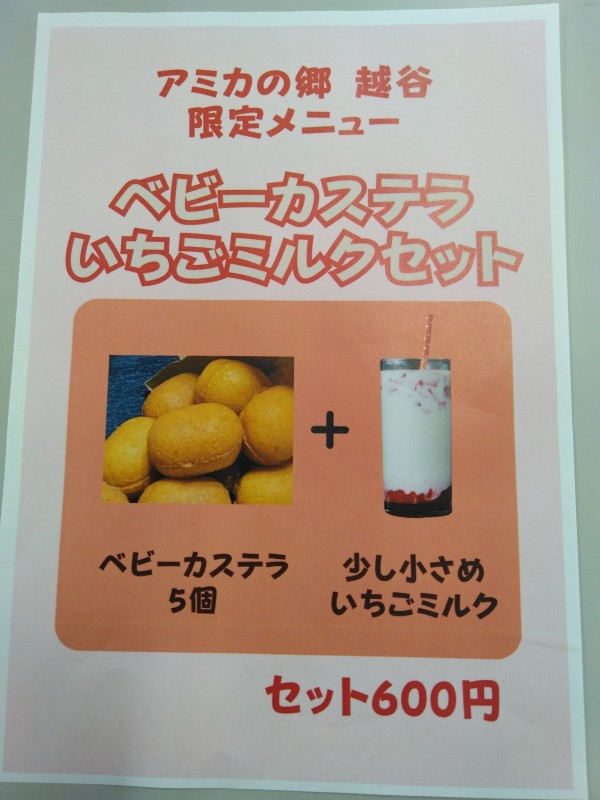 アミカの郷 越谷
限定メニュー
ベビーカステラ
いちごミルクセット
+
ベビーカステラ
5個
少し小さめ
いちごミルク
セット600円